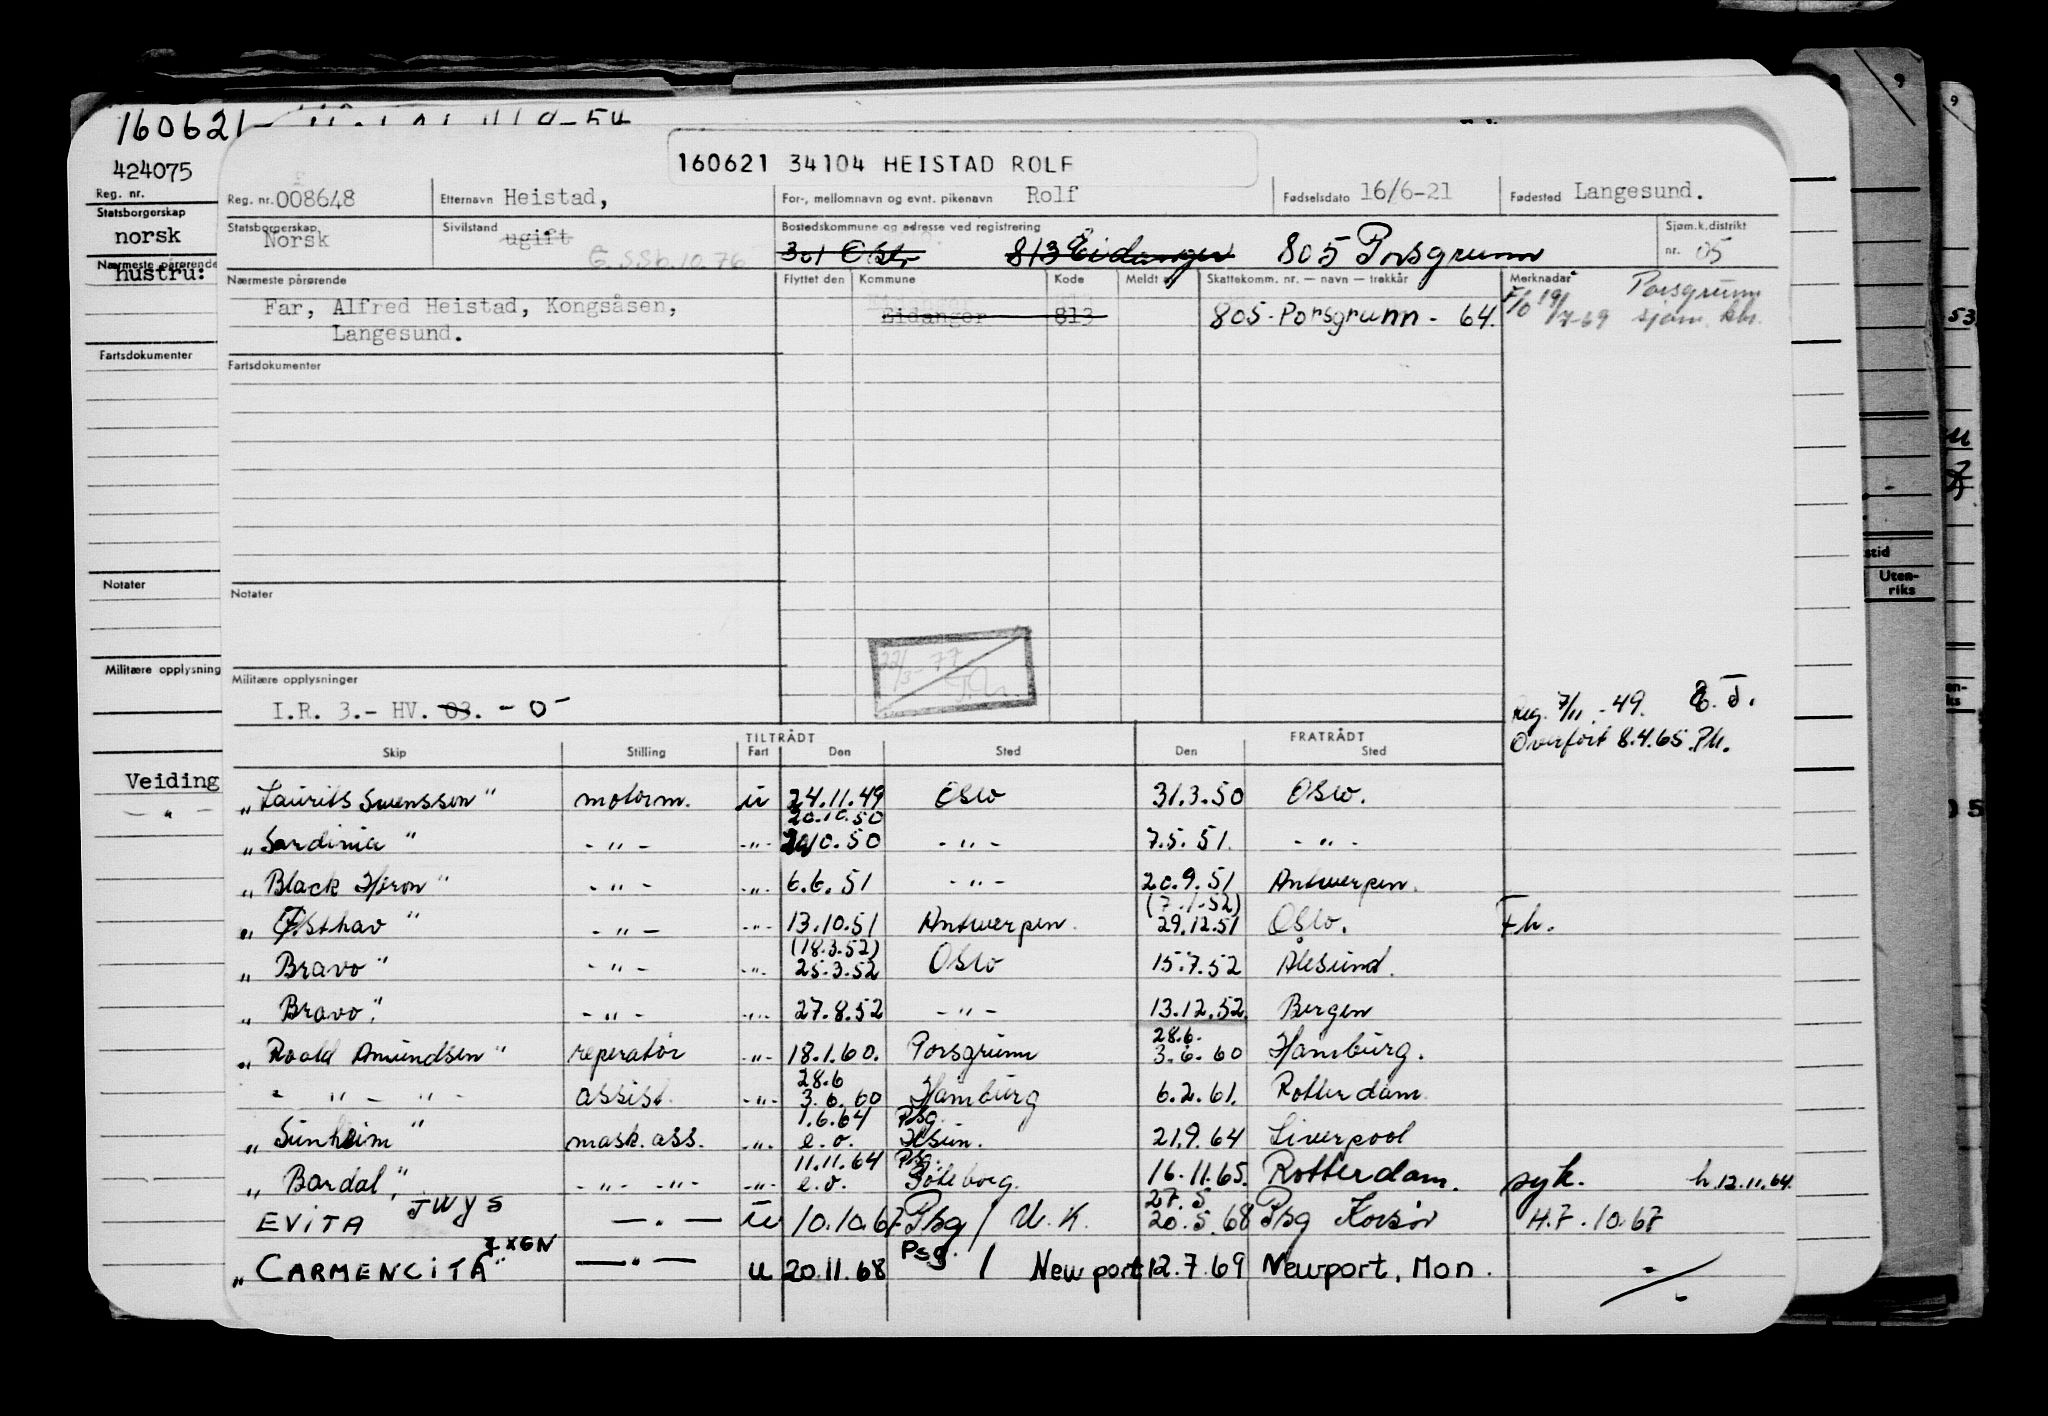 160621-
424075
Reg. nr.
Statsborgerskap
norsk
Nærmeste pårørende
hustru:
Fartsdokumenter
Notater
Militære opplysning
Veiding
- " -
160621 34104 HEISTAD ROLF
Reg. nr. 008648 Etternavn Heistad, For-, mellomnavn og evnt. pikenavn Rolf Fødselsdato 16/6-21 Fødested Langesund.
Statsborgerskap Norsk Sivilstand ugift Bostedskommune og adresse ved registrering Sjøm.k.distrikt
301 Oslo 813 Eidanger 805 Porsgrunn nr. 05
Nærmeste pårørende Flyttet den Kommune Kode Meldt Skattekomm. nr. — navn — trekkår Merknader
Far, Alfred Heistad, Kongsåsen, Eidanger 813 805 - Porsgrunn - 64. F/O 19/7-69 Porsgrunn sjøm. ktr.
Langesund.
Fartsdokumenter
Notater
22/3-77
Militære opplysninger
I.R. 3.- HV. 03. - 0 -
Reg. 7/11 - 49. E. J.
Overført 8.4.65. Ph.
TILTRÅDT FRATRÅDT
Skip Stilling Fart Den Sted Den Sted
"Laurits Swensson" motorm. u 24.11.49 Oslo 31.3.50 Oslo.
20.10.50
"Sardinia" - " - - " - 10.50 - " - 7.5.51. - " -
"Black Heron" - " - - " - 6.6.51 - " - 20.9.51 Antwerpen.
(7.1.52)
"Østhav" - " - - " - 13.10.51 Antwerpen. 29.12.51 Oslo. Fh.
(18.3.52)
"Bravo" - " - - " - 25.3.52 Oslo 15.7.52 Ålesund.
"Bravo" - " - - " - 27.8.52 - " - 13.12.52. Bergen
28.6.
"Roald Amundsen" reperatør - " - 18.1.60. Porsgrunn 3.6.60 Hamburg.
28.6
- " - " - assist. - " - 3.6.60 Hamburg 6.2.61. Rotterdam
1.6.64 Psg.
"Sunheim" mask.ass. - " - e.o. 21.9.64 Liverpool
11.11.64 Psg.
"Bardal" - " - - " - - " - e.o. Göteborg. 16.11.65. Rotterdam. syk. h.12.11.64.
JWYS 27.5
EVITA - " - u 10.10.67 Psg / U.K. 20.5.68 Psg Korsør H.7.10.67
LXGN Psg.
"CARMENCITA" - " - u 20.11.68 / Newport 12.7.69 Newport, Mon.
9
9
53
stid
Uten-
riks
05